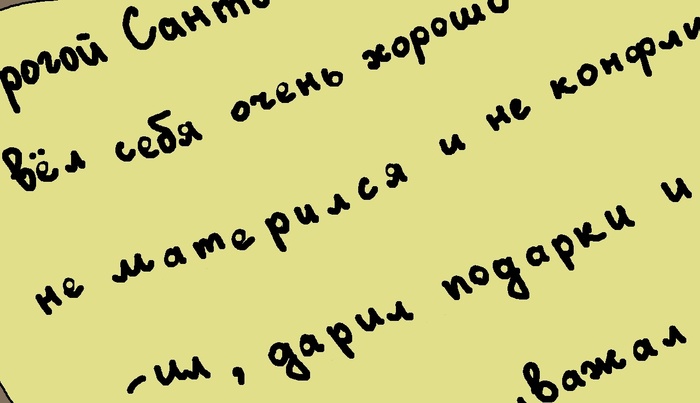 рогой Санта
вёл себя очень хорошо
не матерился и не конфли
ил, дарил подарки и
важал